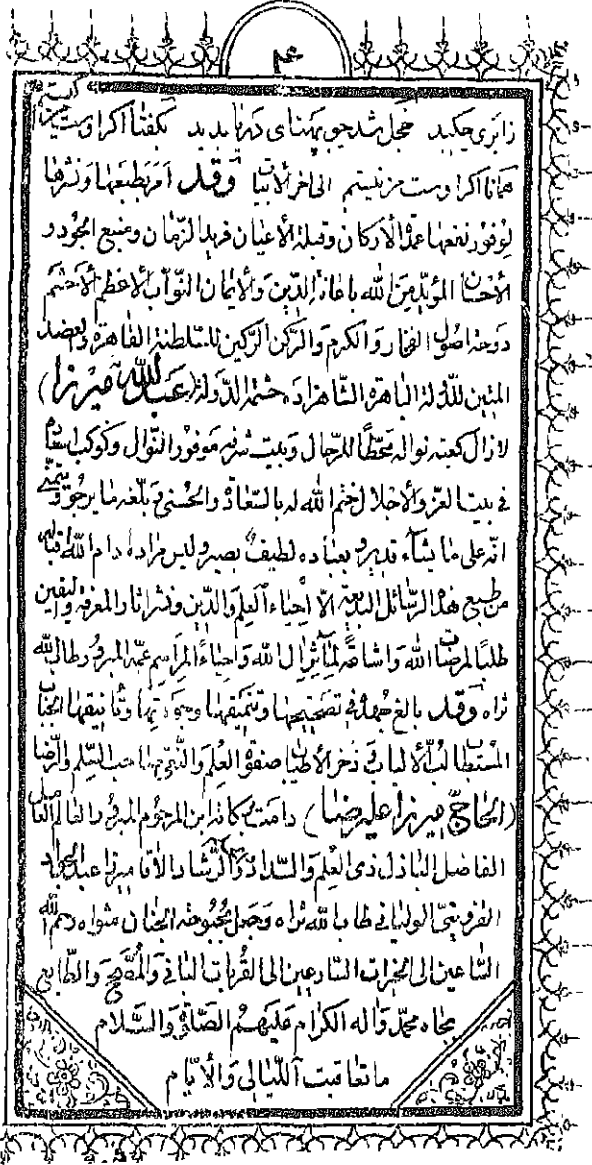 ۴
زائری چکید خجل شد چو پهنای دریا بدید بگفتا اگر اوست من کیستم
همانا اگر اوست من نیستم الی اخر الابیات وقد امر بطبعها ونشرها
لوفور نفعها عمدة الأركان وقبلة الأعیان فرید الزمان ومنبع الجود و
الأحسان المؤید من الله باعانة الدین والأیمان النواب الأعظم الأحشم
دوحة اصول الفخار والکرم والرکن الرکین للسلطنة القاهرة والعضد
المتین للدولة الباهرة الشاهزاده حشمة الدولة (عبدالله میرزا)
لازال کعبة نواله محطا للرحال وبیت شرفه موفور النوال وکوکب
فی بیت العز والاجلال ختم الله له بالسعادة والحسنی وبلغه ما یرجو ویتمنی
انه علی ما یشاء قدیر وبعباده لطیف بصیر ولیس مراده دام الله
من طبع هذه الرسائل البدیعة الا احیاء العلم والدین ونشر اثار المعرفة والیقین
طلبا لمرضات الله واشاعة لمآثر ال الله واحیاء لمراسم عمه المبرور طاب الله
ثراه وقد بالغ جهده فی تصحیحها وتنمیقها وتانیقها الجناب
المستطاب لب الألباب ذخر الأطیاب صفوة العلم والنهی صاحب السلم والرضا
(الحاج میرزا علیرضا) دامت برکاته ابن المرحوم المبرور العالم العامل
الفاضل الباذل ذی العلم والسداد والرشاد الأقا میرزا عبدالجواد
طاب الله ثراه وجعل بحبوحة الجنان مثواه رحم الله
الساعین الی الخیرات السارعین الی القربات البانی والمصحح والطابع
بجاه محمد واله الکرام علیهم الصلوة والسلام
ما تعاقبت اللیالی والأیام